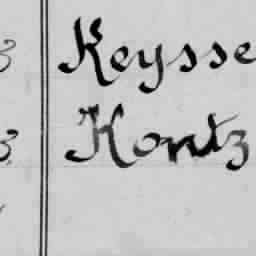 3 Keysse
3 Kontz